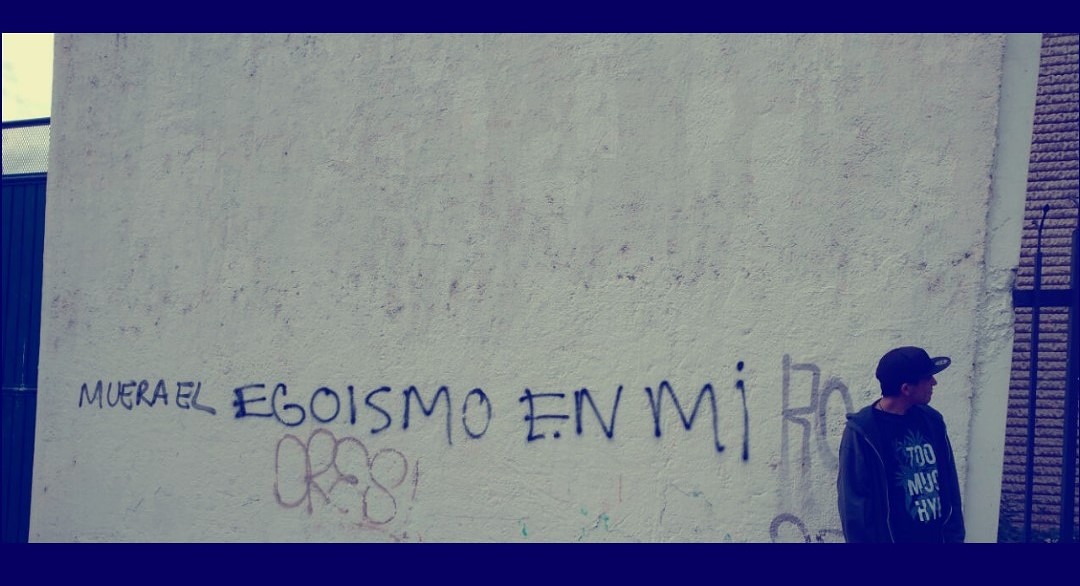 MUERA EL EGOISMO EN Mi
CRES!
RO
TOO
MUC
HY